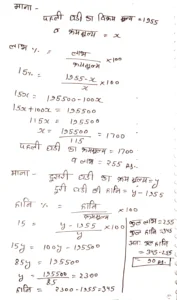 माना -
पहली घड़ी का विक्रय मूल्य = 1955
व क्रयमूल्य = x
लाभ % = लाभ / क्रयमूल्य × 100
15 = 1955-x / x × 100
15x = 195500 - 100x
15x + 100x = 195500
115x = 195500
x = 195500 / 115 = 1700
पहली घड़ी का क्रयमूल्य = 1700
व लाभ = 255 रु.
माना - दूसरी घड़ी का क्रय मूल्य = y
दूसरी घड़ी की हानि = y - 1955
हानि % = हानि / क्रयमूल्य × 100
15 = y - 1955 / y × 100
15y = 100y - 195500
85y = 195500
y = 195500 / 85 = 2300
हानि = 2300 - 1955 = 345
कुल लाभ = 255
कुल हानि = 345
अतः हानि
= 345 - 255
= 90 रु.